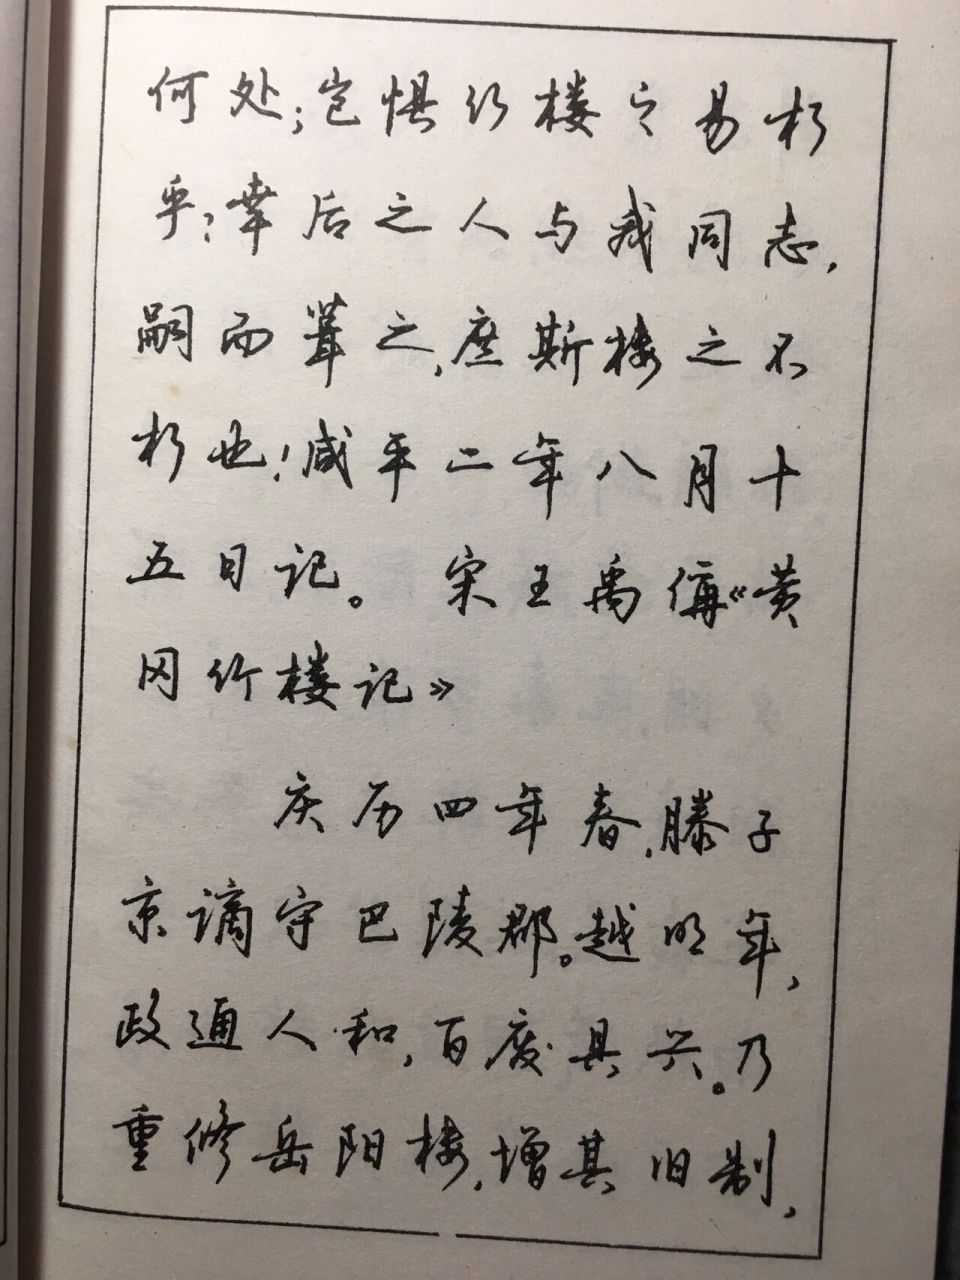 何处；岂惧竹楼之易朽
乎？幸后之人与我同志，
嗣而葺之，庶斯楼之不
朽也！咸平二年八月十
五日记。 宋王禹偁《黄
冈竹楼记》
庆历四年春，滕子
京谪守巴陵郡。越明年，
政通人和，百废具兴。乃
重修岳阳楼，增其旧制，